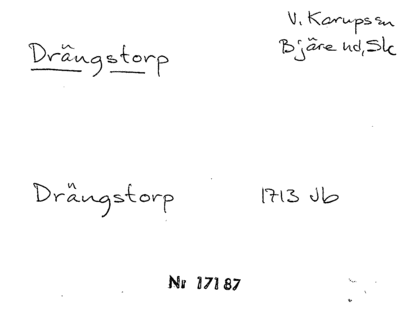 Drängstorp
V. Karups sn
Bjäre hd, Sk
Drängstorp 1713 Jb
Nr 17187